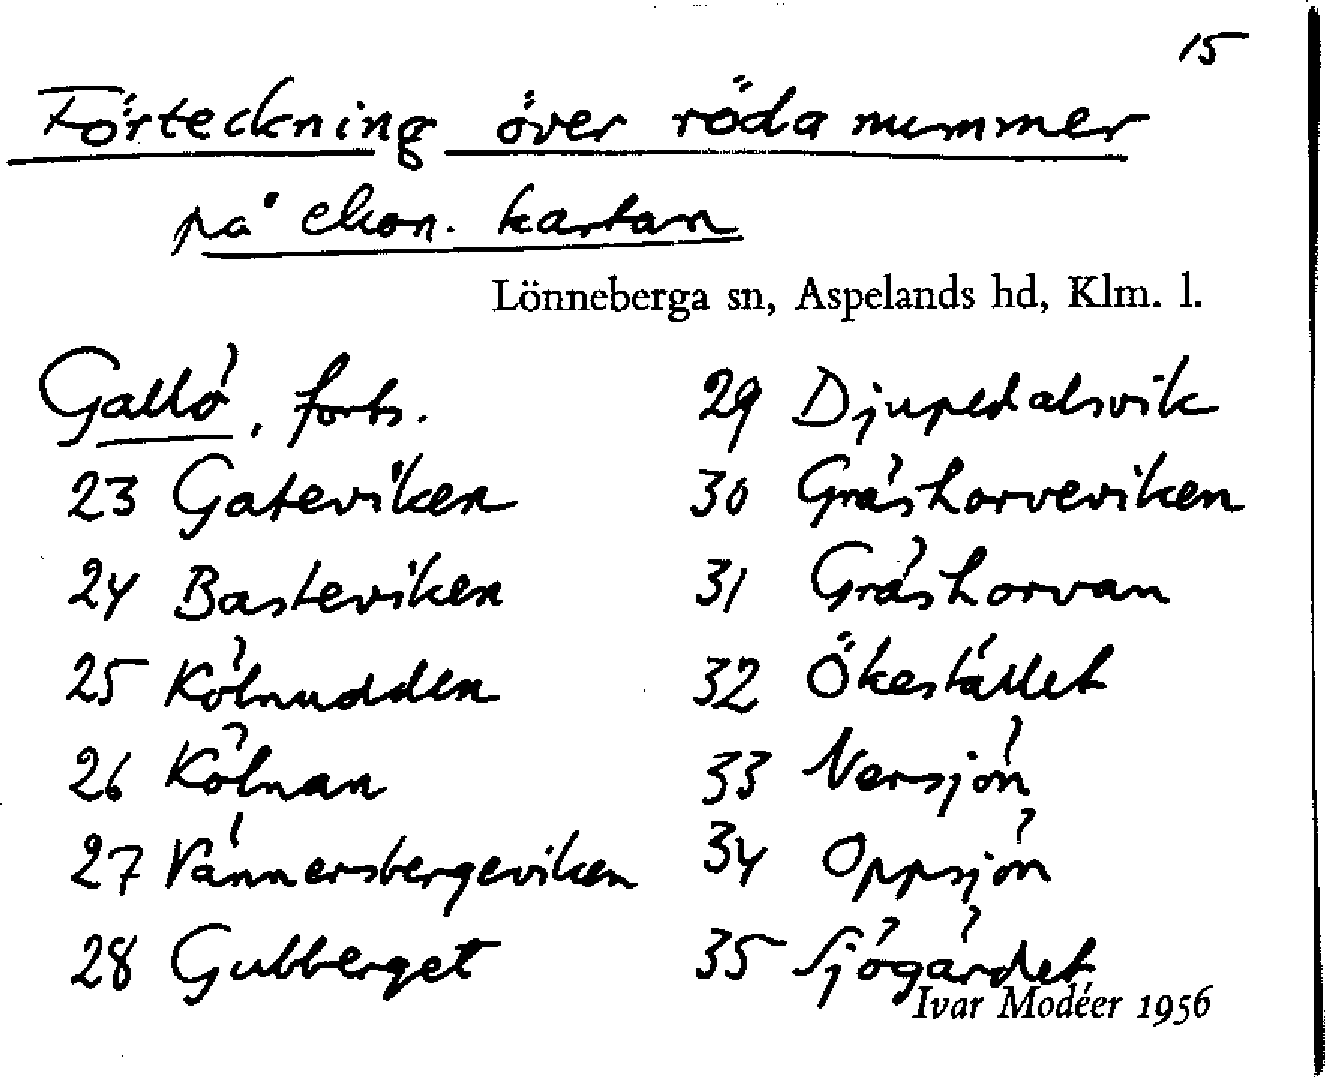 15
Förteckning över röda nummer
på ekon. kartan
Lönneberga sn, Aspelands hd, Klm. l.
Gallö, forts.
23 Gateviken
24 Basteviken
25 Kölnudden
26 Kölnan
27 Vännersbergeviken
28 Gubberget
29 Djupedalsvik
30 Gråshorveviken
31 Gråshorvan
32 Ökestället
33 Versjön
34 Oppsjön
35 Sjögärdet
Ivar Modéer 1956